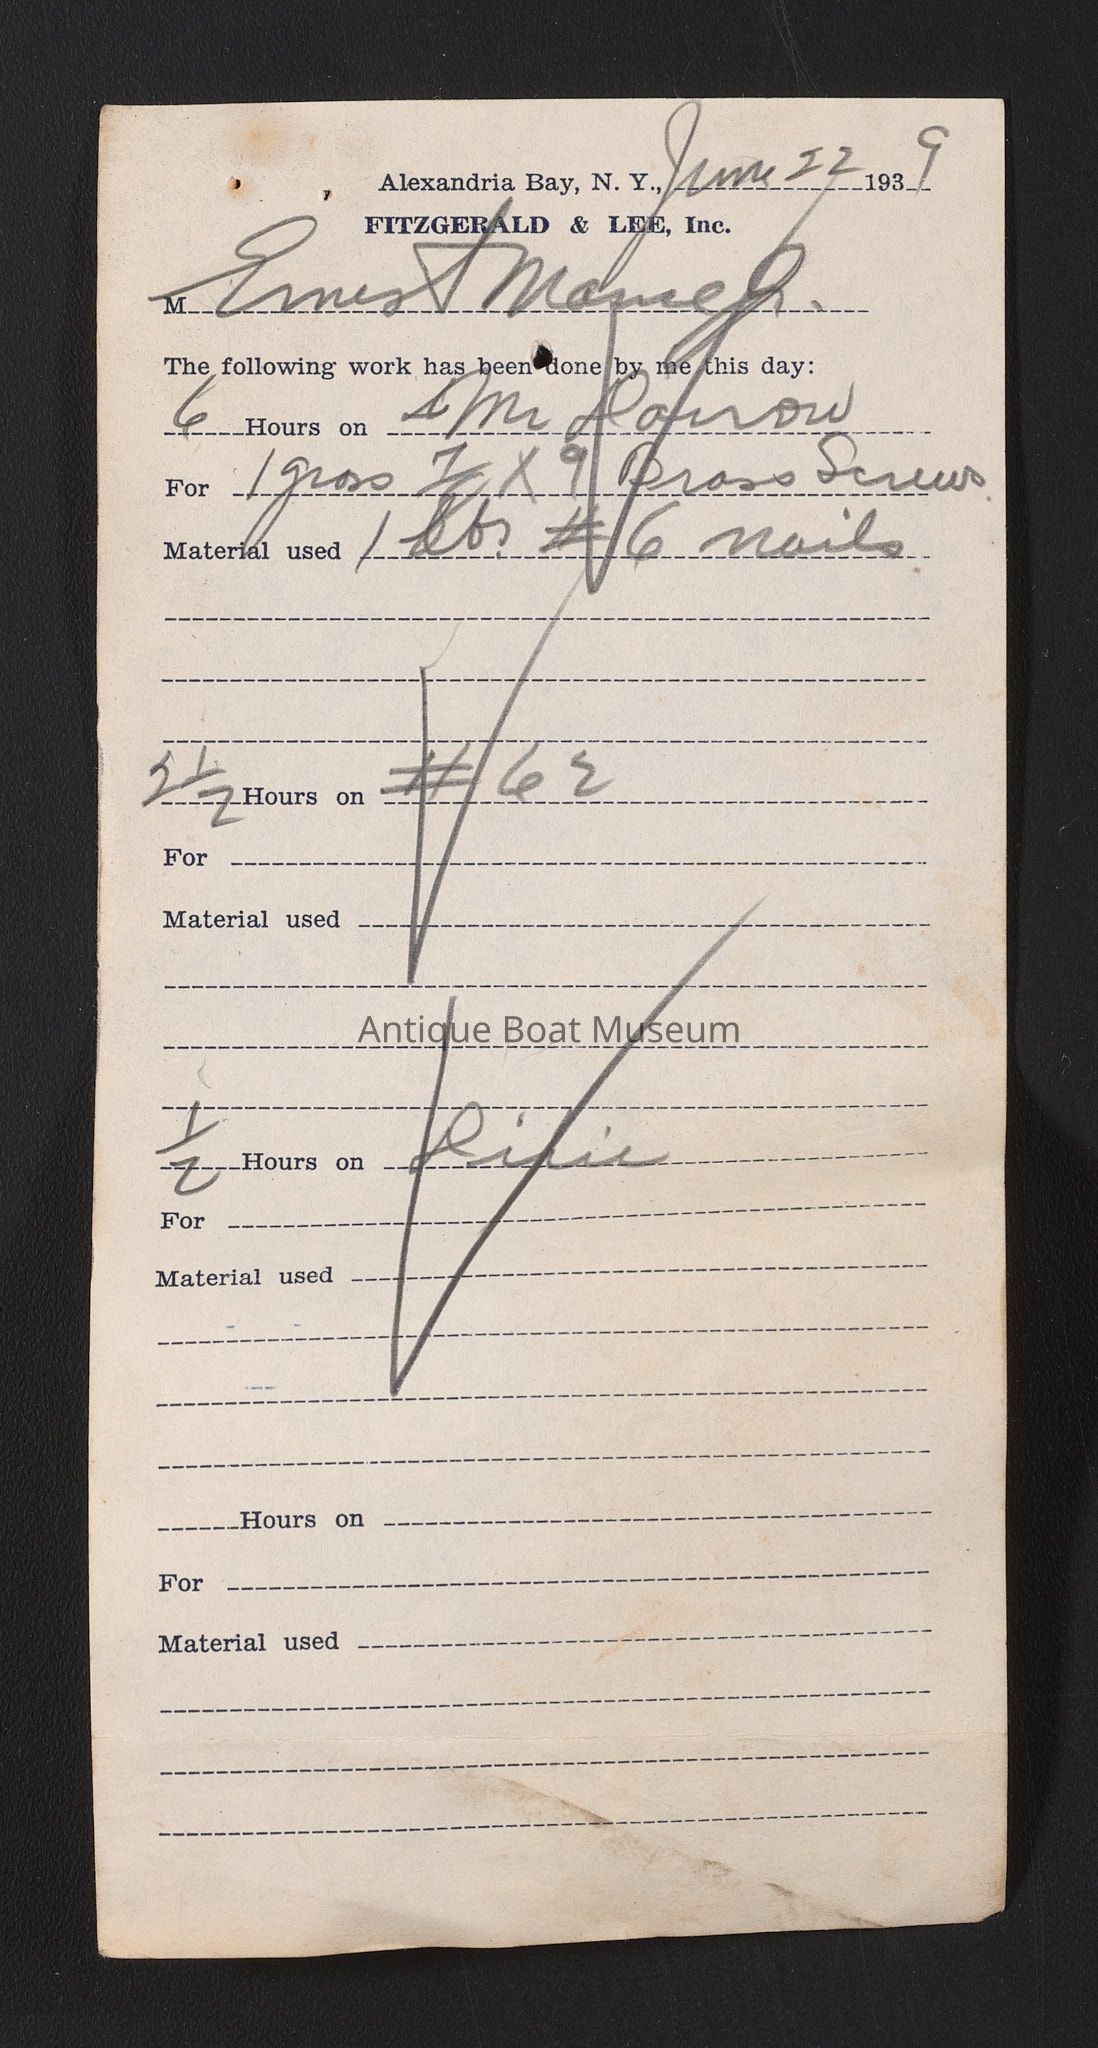 Alexandria Bay, N. Y., June 22 1939
FITZGERALD & LEE, Inc.
M Ernest Jr.
The following work has been done by me this day:
6 Hours on Mr Darrow
For 1 gross 7/8 X 9 Brass Screws
Material used 1 lbs. #6 nails
2 1/2 Hours on #62
For
Material used
Antique Boat Museum
1/2 Hours on Dixie
For
Material used
Hours on
For
Material used